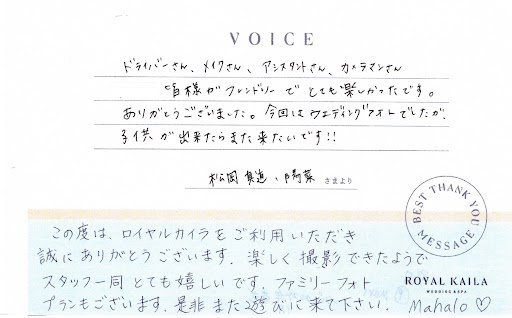 VOICE
ドライバーさん、メイクさん、アシスタントさん、カメラマンさん
皆様がフレンドリーでとても楽しかったです。
ありがとうございました。今回はウエディングフォトでしたが、
子供が出来たらまた来たいです!!
松岡 真進・陽菜 さまより
BEST THANK YOU MESSAGE
この度は、ロイヤルカイラをご利用いただき
誠にありがとうございます。楽しく撮影できたようで
スタッフ一同とても嬉しいです。ファミリーフォト
プランもございます。是非また遊びに来て下さい。
ROYAL KAILA
WEDDING & SPA
Mahalo ♡